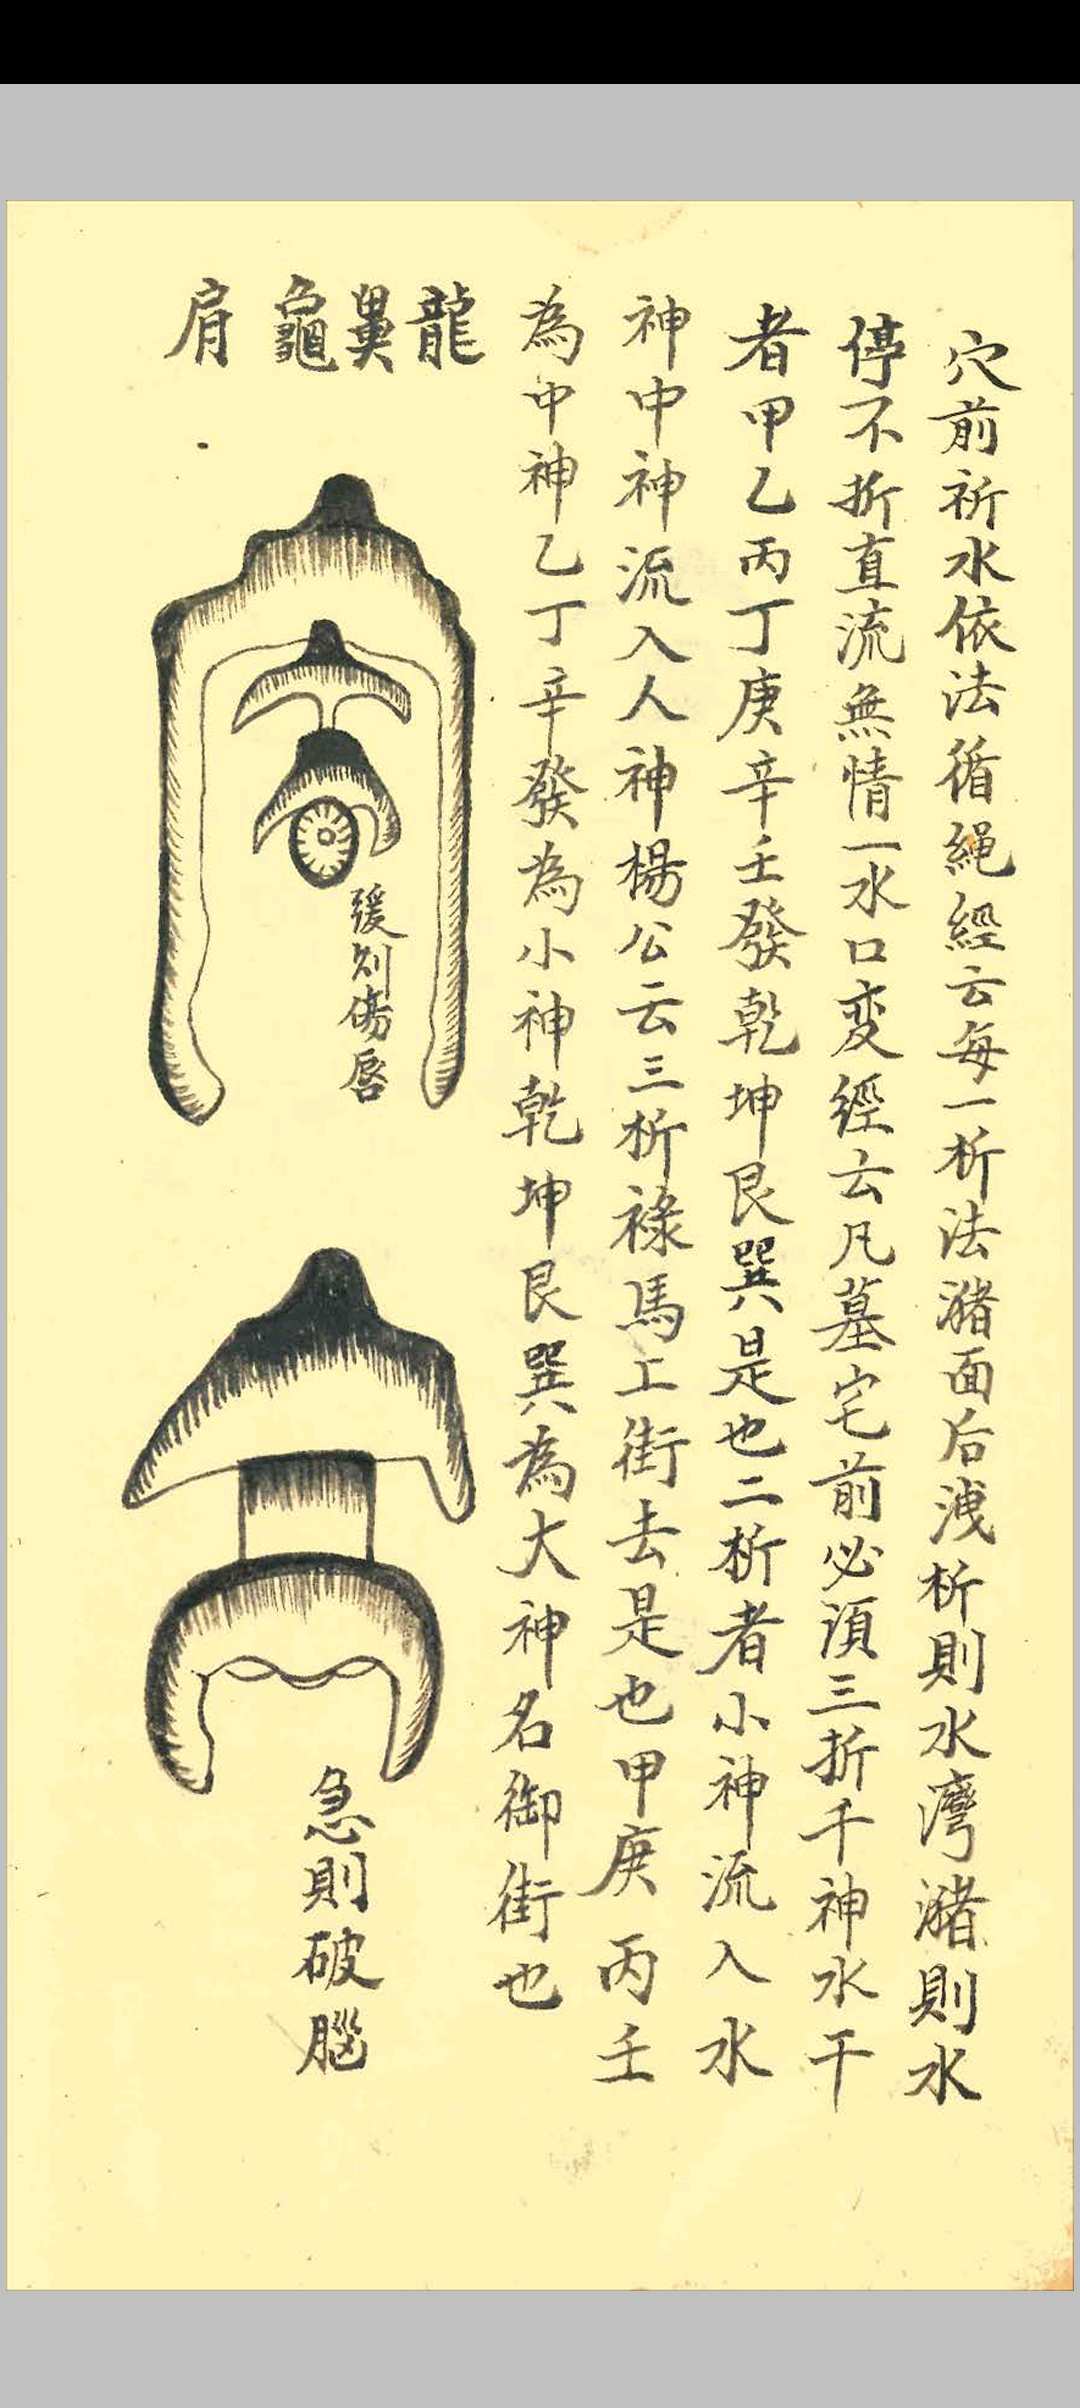 穴前祈水依法循繩經云每一析法潴面后洩析則水灣潴則水
停不折直流無情一水口变經云凡墓宅前必須三折千神水干
者甲乙丙丁庚辛壬發乾坤艮巽是也二析者小神流入水
神中神流入人神楊公云三析祿馬上街去是也甲庚丙壬
為中神乙丁辛發為小神乾坤艮巽為大神名御街也
龍
鼻
龜
肩
緩則傷唇
急則破腦